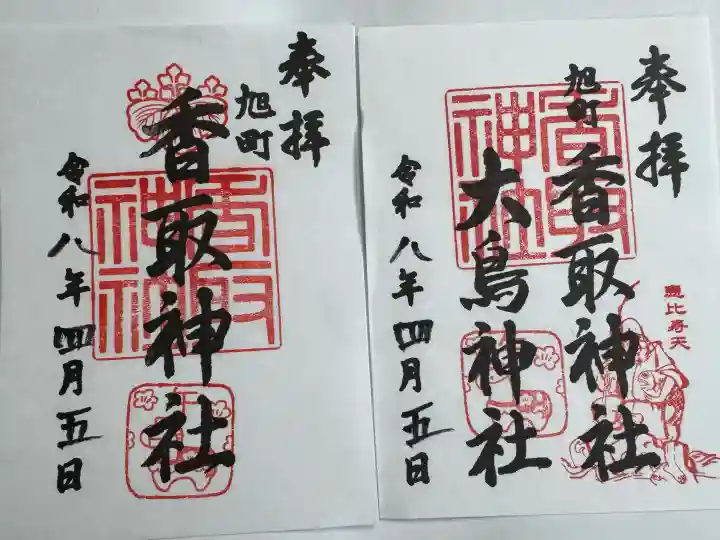 奉拝
旭町
香取神社
令和八年四月五日
香取神社
奉拝
旭町
香取神社
大鳥神社
令和八年四月五日
香取神社
恵比寿天